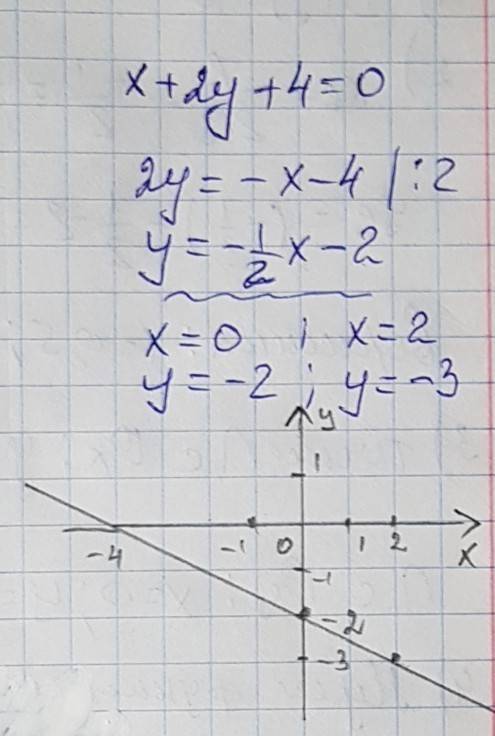 x+2y+4=0
2y=-x-4 |:2
y=-1/2x-2
x=0 ; x=2
y=-2 ; y=-3
y
1
-4 -1 0 1 2 x
-1
-2
-3